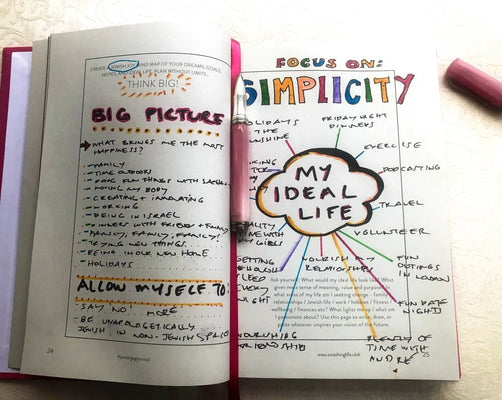 CREATE A JEWISH JOY MIND MAP OF YOUR DREAMS, GOALS,
HOPES, AND IDEAL LIFE. PLAN WITHOUT LIMITS...
THINK BIG!
BIG PICTURE
WHAT BRINGS ME THE MOST
HAPPINESS?
- FAMILY
- TIME OUTDOORS
- DOING FUN THINGS WITH
- MOVING MY BODY
- CREATING + INNOVATING
- WORKING
- BEING IN ISRAEL
- DINNERS WITH FRIENDS + FAMILY
- FAMILY, FAMILY, FAMILY!
- TRYING NEW THINGS
- BEING IN OUR NEW HOME
- HOLIDAYS
ALLOW MYSELF TO:
SAY NO MORE
BE UNAPOLOGETICALLY
JEWISH IN NON-JEWISH SPACES
24
#jewishjoyjournal
FOCUS ON:
SIMPLICITY
HOLIDAYS
THE
SUNSHINE
FRIDAY NIGHT
DINNERS
EXERCISE
PODCASTING
TRAVEL
VOLUNTEER
FUN
OUTINGS
IN LONDON
FUN DATE
NIGHTS
PLENTY OF
TIME WITH
AND
MY
IDEAL
LIFE
TIME WITH
MY GIRLS
GETTING
NIGHT
NOURISH MY
RELATIONSHIPS
NOURISHING
FRIENDSHIPS
Ask yourself: What would my ideal life look like? What
gives me a sense of meaning, value and purpose?
What areas of my life am I seeking change - family /
relationships / Jewish life / work / hobbies / fitness /
wellbeing / finances etc? What lights me up / what am
I passionate about? Use this page to write, draw, or
create whatever inspires your vision of the future.
www.smashinglife.club
25